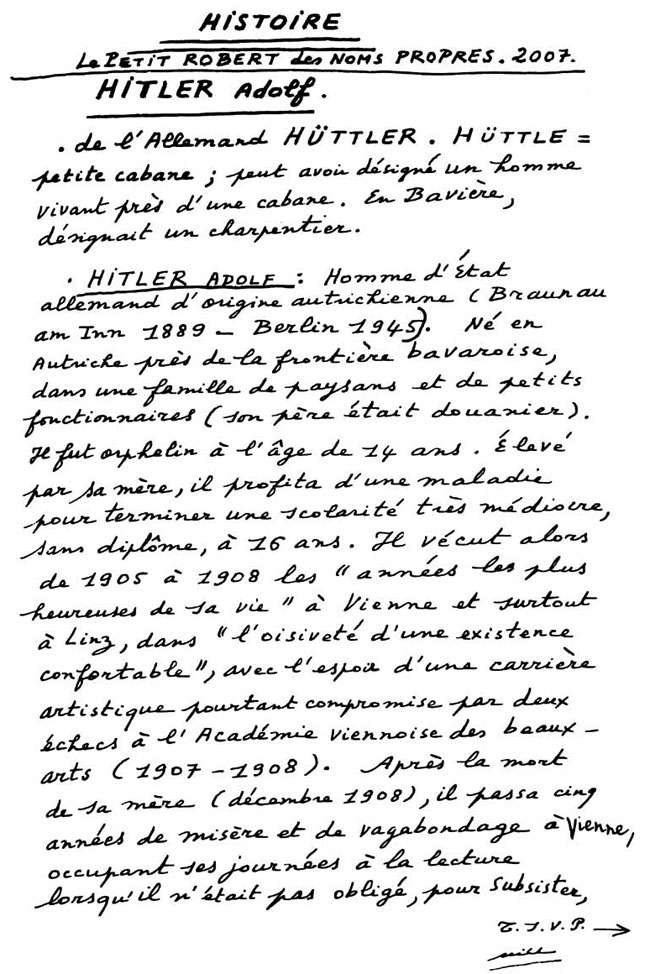 HISTOIRE
Le PETIT ROBERT des NOMS PROPRES. 2007.
HITLER Adolf.
. de l'Allemand HÜTTLER. HÜTTLE =
petite cabane ; peut avoir désigné un homme
vivant près d'une cabane. En Bavière,
désignait un charpentier.
. HITLER ADOLF : Homme d'État
allemand d'origine autrichienne (Braunau
am Inn 1889 - Berlin 1945). Né en
Autriche près de la frontière bavaroise,
dans une famille de paysans et de petits
fonctionnaires (son père était douanier).
Il fut orphelin à l'âge de 14 ans. Élevé
par sa mère, il profita d'une maladie
pour terminer une scolarité très médiocre,
sans diplôme, à 16 ans. Il vécut alors
de 1905 à 1908 les "années les plus
heureuses de sa vie" à Vienne et surtout
à Linz, dans "l'oisiveté d'une existence
confortable", avec l'espoir d'une carrière
artistique pourtant compromise par deux
échecs à l'Académie viennoise des beaux-
arts (1907-1908). Après la mort
de sa mère (décembre 1908), il passa cinq
années de misère et de vagabondage à Vienne,
occupant ses journées à la lecture
lorsqu'il n'était pas obligé, pour subsister,
T.S.V.P. →